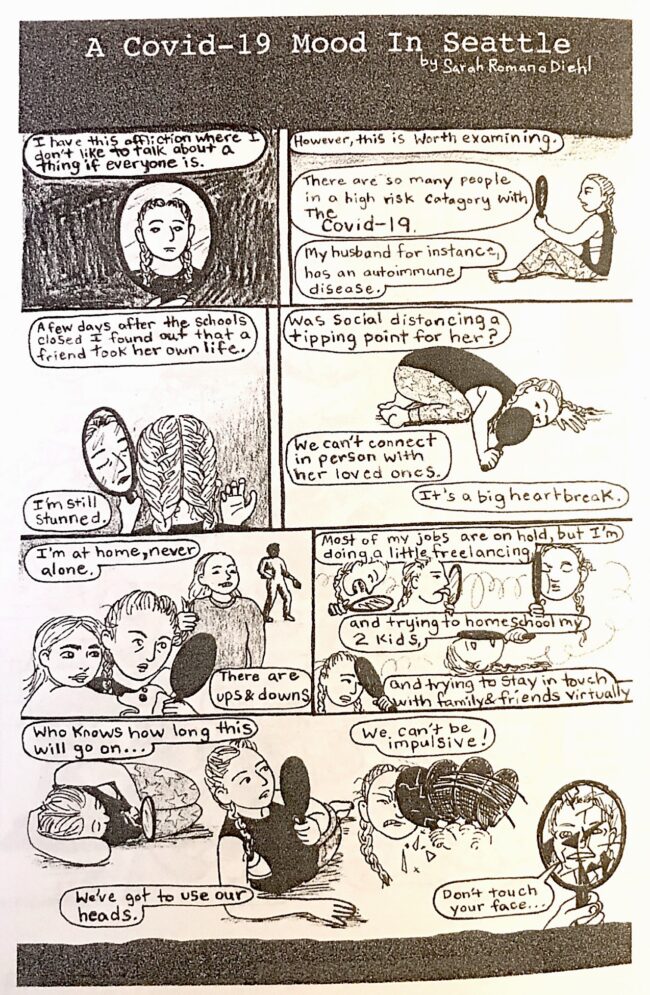 A Covid-19 Mood In Seattle
by Sarah Romano Diehl
I have this affliction where I
don't like to talk about a
thing if everyone is.
However, this is worth examining.
There are so many people
in a high risk catagory with
The
Covid-19.
My husband for instance,
has an autoimmune
disease.
A few days after the schools
closed I found out that a
friend took her own life.
I'm still
stunned.
Was Social distancing a
tipping point for her?
We can't connect
in person with
her loved ones.
It's a big heartbreak.
I'm at home, never
alone.
There are
ups & downs
Most of my jobs are on hold, but I'm
doing a little freelancing
and trying to homeschool my
2 kids,
and trying to stay in touch
with family & friends virtually
Who knows how long this
will go on...
We've got to use our
heads.
We can't be
impulsive!
Don't touch
your face...